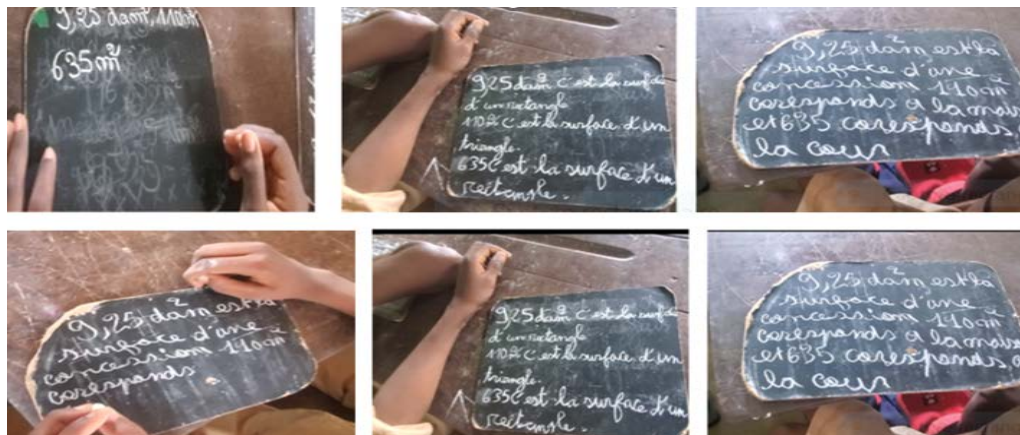 9,25 dam², 110m²
635m²
9,25dam² c'est la surface
d'un rectangle
110m² C'est la surface d'un
triangle.
635C'est la surface d'un
rectangle.
9,25 dam² est la
surface d'une
concession 110m²
coresponds a la maison
et 635 coresponds a
la cour
9,25 dam² est la
surface d'une
concession 110m²
coresponds
9,25dam² c'est la surface
d'un rectangle
110m² C'est la surface d'un
triangle.
635C'est la surface d'un
rectangle.
9,25 dam² est la
surface d'une
concession 110m²
coresponds a la maison
et 635 coresponds a
la cour